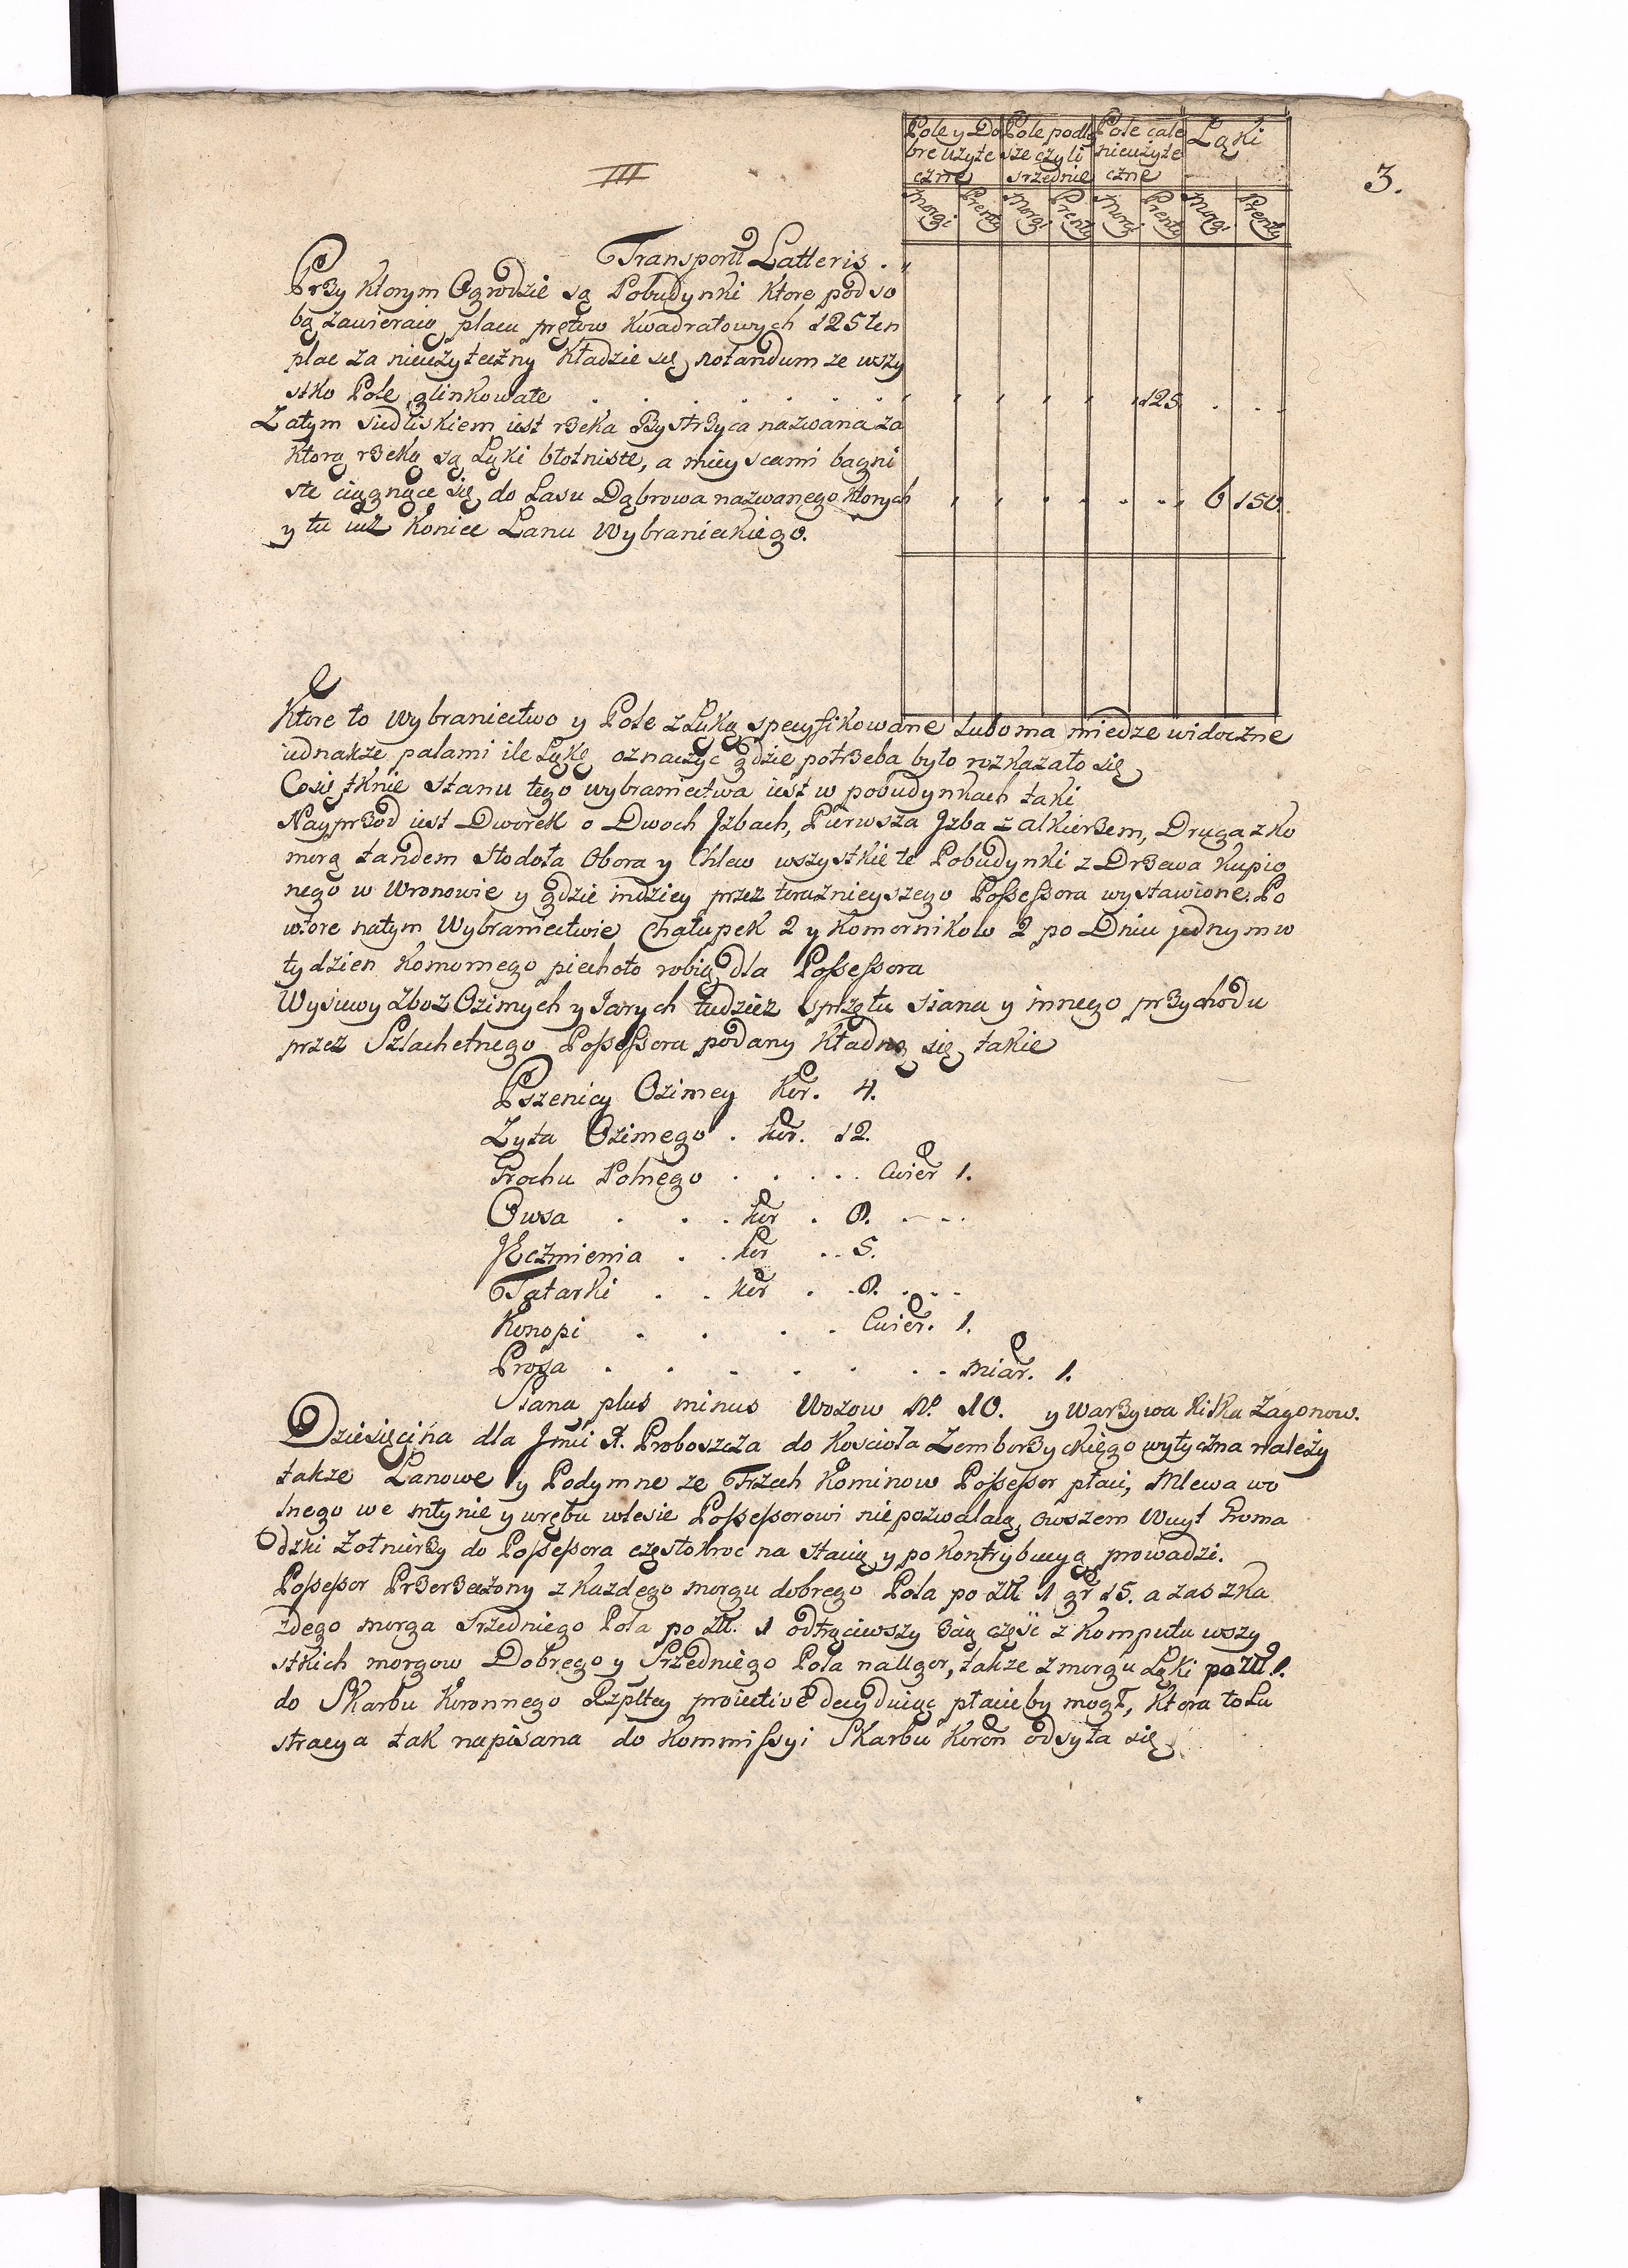 III
3.
Pole y Do Pole podley Pole cale Łąki
bre użyte sze czyli nieużyte
czne srzednie czne
Morgi Prenty Morgi Prenty Morgi Prenty Morgi Prenty
Transport Latteris .
Przy ktorym Ogrodzie są Pobudynki ktore pod so
bą zawieraią placu prętow kwadratowych 125 ten
plac za nieużyteczny kładzie się, notandum ze wszy
stko Pole glinkowate . . . . . . . 125 . . .
Zatym siedliskiem iest rzeka Bystrzyca nazwana za
ktorą rzeką są Łąki błotniste, a mieyscami bagni
ste ciągnące się do Lasu Dąbrowa nazwanego ktorych 6 150.
y tu iuż koniec Lanu Wybranieckiego.
Ktore to Wybraniectwo y Pole z Łąką specyfikowane lubo ma miedze widoczne
iednakże palami ile Łąkę oznaczyc gdzie potrzeba było rozkazało się
Co się tknie stanu tego wybraniectwa iest w pobudynkach taki
Nayprzod iest Dworek o Dwoch Jzbach, Pierwsza Jzba z alkierzem, Druga z ko
morą tandem Stodoła Obora y Chlew wszystkie te Pobudynki z Drzewa kupio
nego w Wronowie y gdzie indziey przez teraznieyszego Possessora wystawione. Po
wtore na tym Wybraniectwie Chałupek 2 y Komornikow 2 po Dniu jednym w
tydzien komornego piechoto robią dla Possessora
Wysiewy Zboz Ozimych y Jarych tudziez sprzętu siana y innego przychodu
przez Szlachetnego Possessora podany kładną się takie
Pszenicy Ozimey Kor. 4.
Zyta Ozimego . kor. 12.
Grochu Polnego . . . . . Cwier 1.
Owsa . . . kor . 8. . . . .
JEczmienia . . kor . . 5.
Tatarki . . kor . . 8. . . .
Konopi . . . . Cwier. 1.
Prosa . . . . . . . Miar. 1.
Siana plus minus Wozow No. 10. y Warzywa kilka Zagonow.
Dziesięcina dla Jmci X. Proboszcza do Koscioła Zemborzyckiego wytyczna należy
takze Łanowe y Podymne ze Trzech Kominow Possessor płaci, Mlewa wo
lnego we młynie y wrębu w lesie Possessorowi nie pozwalaią, owszem Wuyt Groma
dzki Zołnierzy do Possessora częstokroc na stacią y po kontrybucyą prowadzi.
Possessor Przerzeczony z kazdego morgu dobrego Pola po Złł 1 gr 15. a zas z ka
zdego morga srzedniego Pola po Złł. 1 odtrąciwszy 3cią częsc z komputu wszy
stkich morgow Dobrego y Srzedniego Pola na Ugor, takze z morgu Łąki po Złł. 1.
do Skarbu Koronnego Rzpltey proiective decyduiąc płacic by mogł, ktora to Lu
stracya tak napisana do Kommissyi Skarbu Koron odsyła się